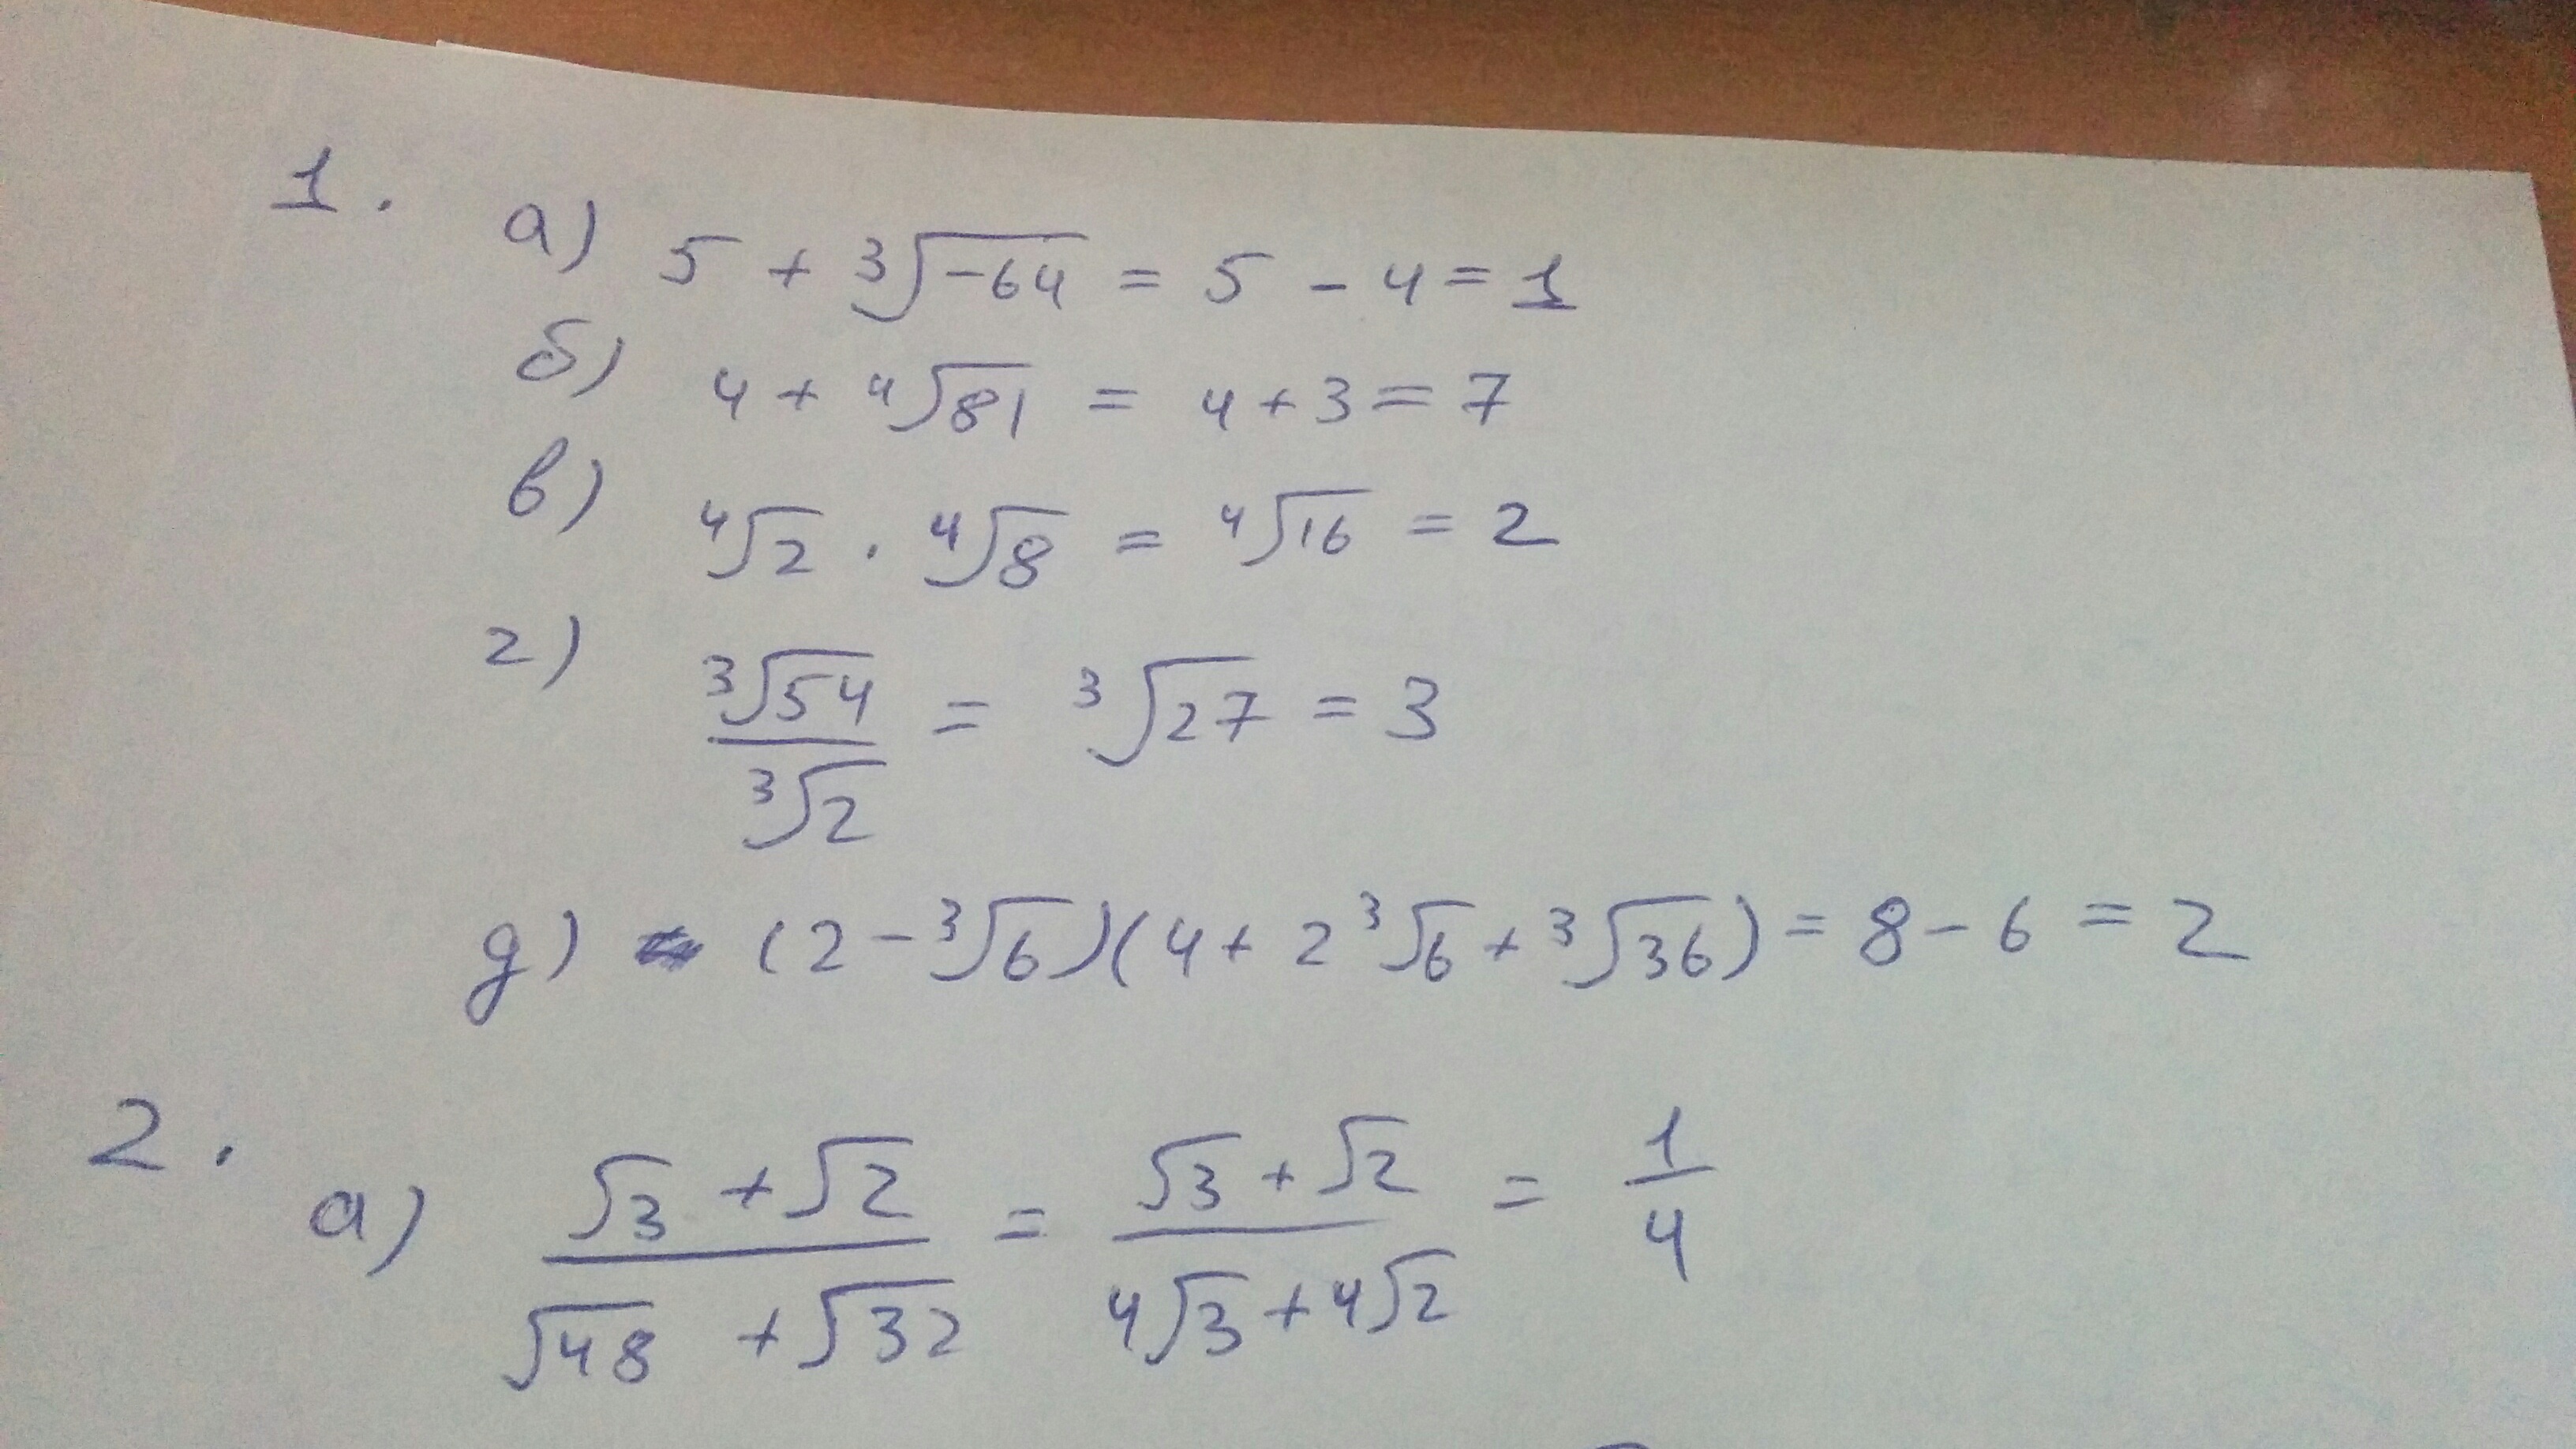 1.
а) 5 + ³√-64 = 5 - 4 = 1
б) 4 + ⁴√81 = 4 + 3 = 7
в) ⁴√2 · ⁴√8 = ⁴√16 = 2
г) ³√54 / ³√2 = ³√27 = 3
д) (2 - ³√6)(4 + 2³√6 + ³√36) = 8 - 6 = 2
2.
а) (√3 + √2) / (√48 + √32) = (√3 + √2) / (4√3 + 4√2) = 1/4